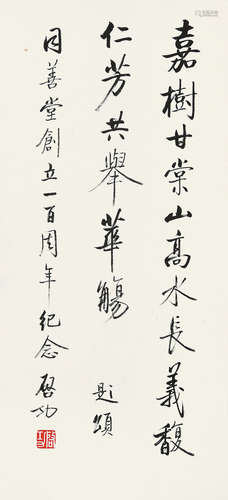 嘉樹甘棠山高水長義馥
仁芳共舉華觴
題頌
同善堂創立一百周年紀念
啓功